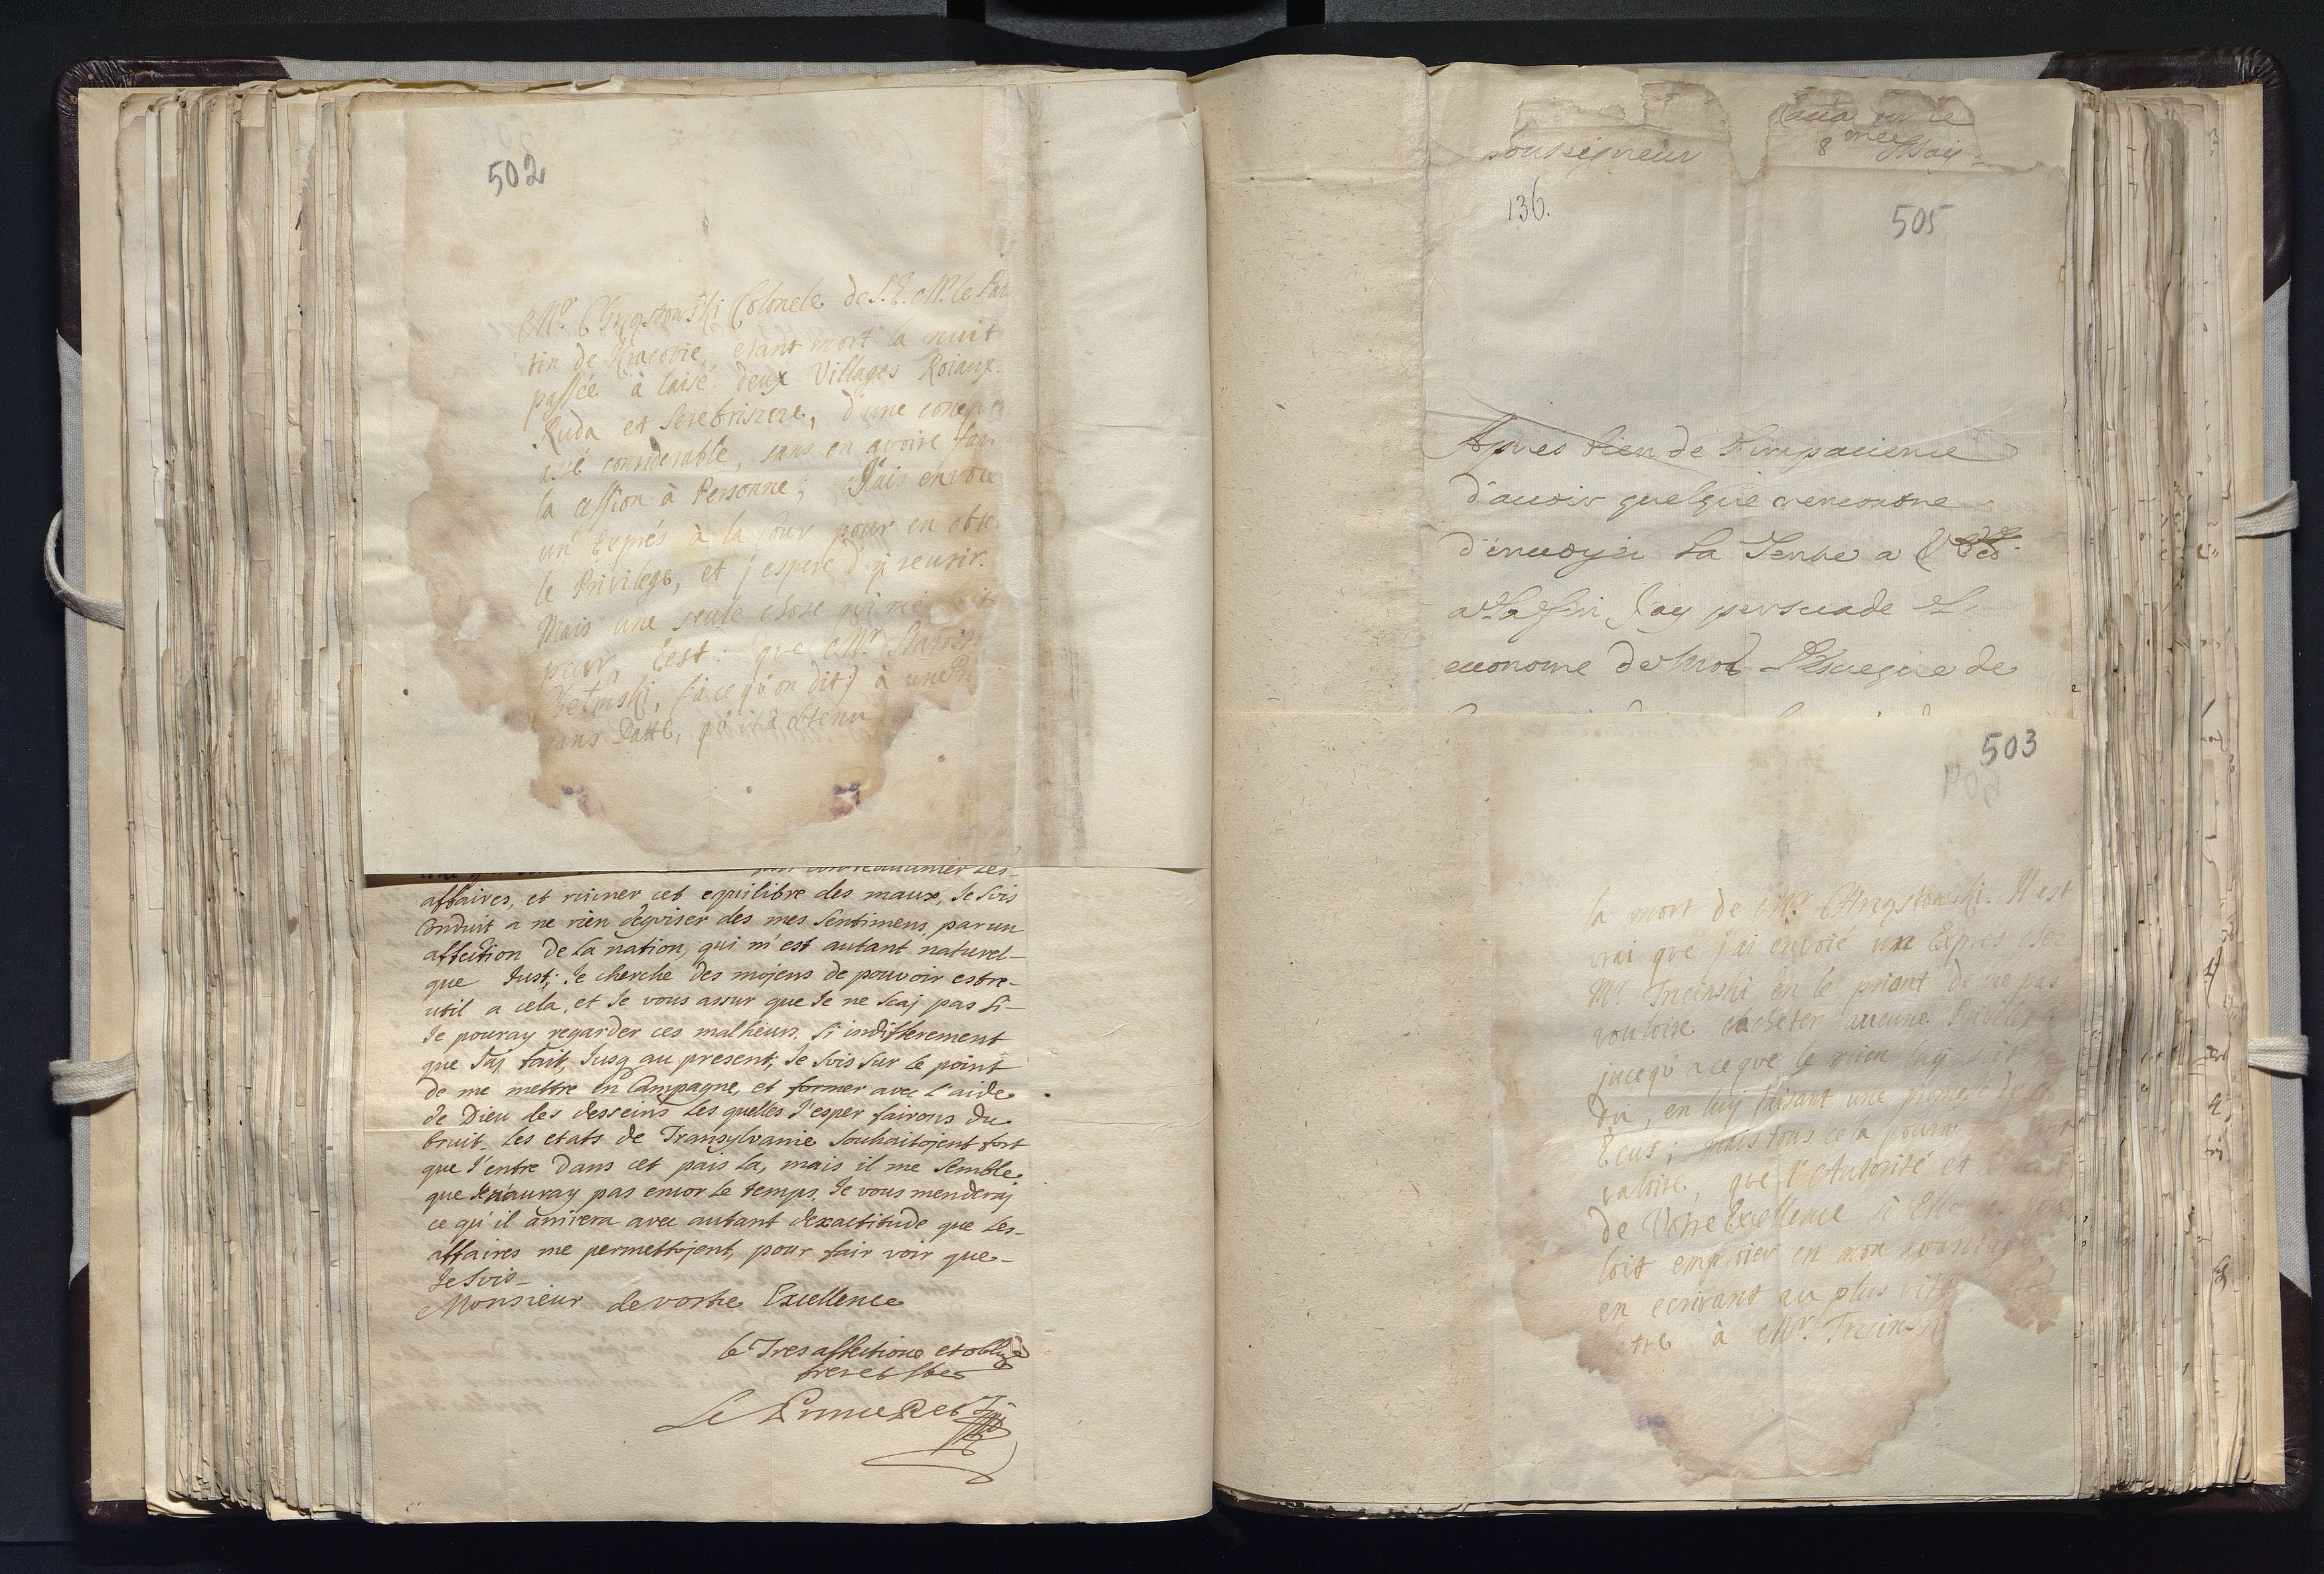 502
Mr. Chrząstowski Colonele de S. E. Mr. le Pala
tin de Kracovie, etant mort la nuit
passée à laisé deux Villages Roiaux
Ruda et Serebriszcze, d'une
considerable, sans en avoire fait
la cession à Personne; J'ais envoié
un Exprés à la Cour pour en
le Privilege, et j'espere d'y reusir.
Mais une seule chose qui me
peur, C'est: que Mr.
(à ce qu'on dit) à
sans Datte, qu'il à obtenu
affaires, et ruiner cet equilibre des maux, Je suis
Conduit a ne rien degviser des mes Sentimens, par un
affection de la nation, qui m'est autant naturel-
que Just; Je cherche des mojens de pouvoir estre-
util a cela, et Je vous assur que Je ne scaj pas si-
Je pouray regarder ces malheurs, si indifferement
que J'aj fait, Jusq au present; Je suis sur le point
de me mettre en Campagne, et former avec l'aide
de Dieu des desseins les quelles J'esper fairons du
bruit. Les etats de Transylvanie souhaitojent fort
que J'entre dans cet pais la, mais il me semble
que Je n'auray pas encor le temps. Je vous menderaj
ce qu'il arrivera avec autant d'exactitude que les-
affaires me permettojent, pour fair voir que-
Je suis-
Monsieur de vostre Excellence
le Tres affectione et oblige
Le Prince
8me May
136.
505
Apres bien de l'impacience
d'avoir quelque rencontre
d'envoyer la Tente a
a la fin J'ay persuade
econome de de
503
la mort de Mr. Chrząstowski. Il est
vrai que j'ai envoié un Exprés chez
Mr. en le priant de ne pas
vouloire cacheter aucune Privilege
jucequ'a ceque le mien luy soit
du, en luy faisant une promesse de
Ecus; mais tous cela poura
valoire, que l'Autorité et
de Votre Excellence si Elle
loit emploier en mon
en ecrivant au plus vite
à Mr.